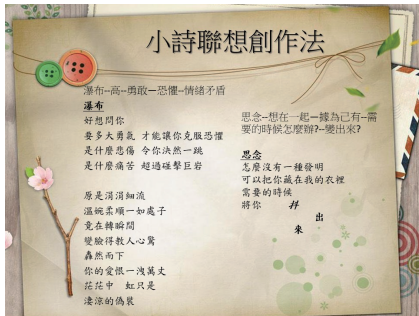 小詩聯想創作法
瀑布--高--勇敢--恐懼--情緒矛盾
瀑布
好想問你
要多大勇氣 才能讓你克服恐懼
是什麼悲傷 令你決然一跳
是什麼痛苦 超過碰擊巨岩
原是涓涓細流
溫婉柔順一如處子
竟在轉瞬間
變臉得教人心驚
轟然而下
你的愛恨一洩萬丈
茫茫中 虹只是
淒涼的偽裝
思念--想在一起--據為己有--需
要的時候怎麼辦?--變出來?
思念
怎麼沒有一種發明
可以把你藏在我的衣裡
需要的時候
將你 拜
出
來